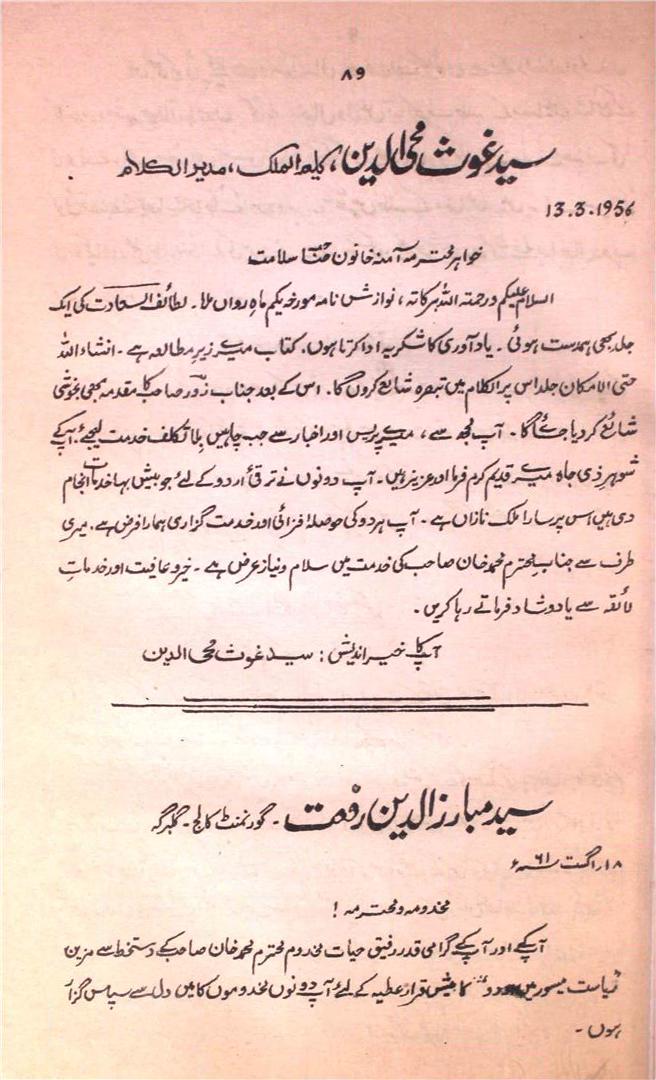 ۸۹
سید غوث محی الدین، کلیم الملک، مدیر الکلام
13.3.1956
خواہر محترمہ آمنہ خاتون صاحبہ سلامت
السلام علیکم ورحمتہ اللہ برکاتہ، نوازش نامہ مورخہ یکم ماہ رواں ملا۔ لطائف السعادت کی ایک
جلد بھی ہمدست ہوئی۔ یاد آوری کا شکریہ ادا کرتا ہوں۔ کتاب میرے زیر مطالعہ ہے۔ انشاء اللہ
حتی الامکان جلد اس پر الکلام میں تبصرہ شایع کروں گا۔ اس کے بعد جناب زور صاحب کا مقدمہ بھی بخوشی
شائع کر دیا جائے گا۔ آپ مجھ سے، میرے پریس اور اخبار سے جب چاہیں بلا تکلف خدمت لیجئے۔ آپ کے
شوہر ذی جاہ میرے قدیم کرم فرما اور عزیز ہیں۔ آپ دونوں نے ترقیٔ اردو کے لئے جو بیش بہا خدمات انجام
دی ہیں اس پر سارا ملک نازاں ہے۔ آپ ہر دو کی حوصلہ افزائی اور خدمت گزاری ہمارا فرض ہے۔ میری
طرف سے جناب محترم محمد خان صاحب کی خدمت میں سلام و نیاز عرض ہے۔ خیر و عافیت اور خدماتِ
لائقہ سے یاد و شاد فرماتے رہا کریں۔
آپ کا خیر اندیش: سید غوث محی الدین
سید مبارز الدین رفعت۔ گورنمنٹ کالج۔ گلبرگہ
۱۸؍ اگست ۶۱ء
مخدومہ و محترمہ!
آپ کے اور آپ کے گرامی قدر رفیق حیات مخدوم محترم محمد خان صاحب کے دستخط سے مزین
ریاست میسور میں اردو" کا بیش قرار عطیہ کے لئے آپ دونوں مخدوموں کا میں دل سے سپاس گزار
ہوں۔